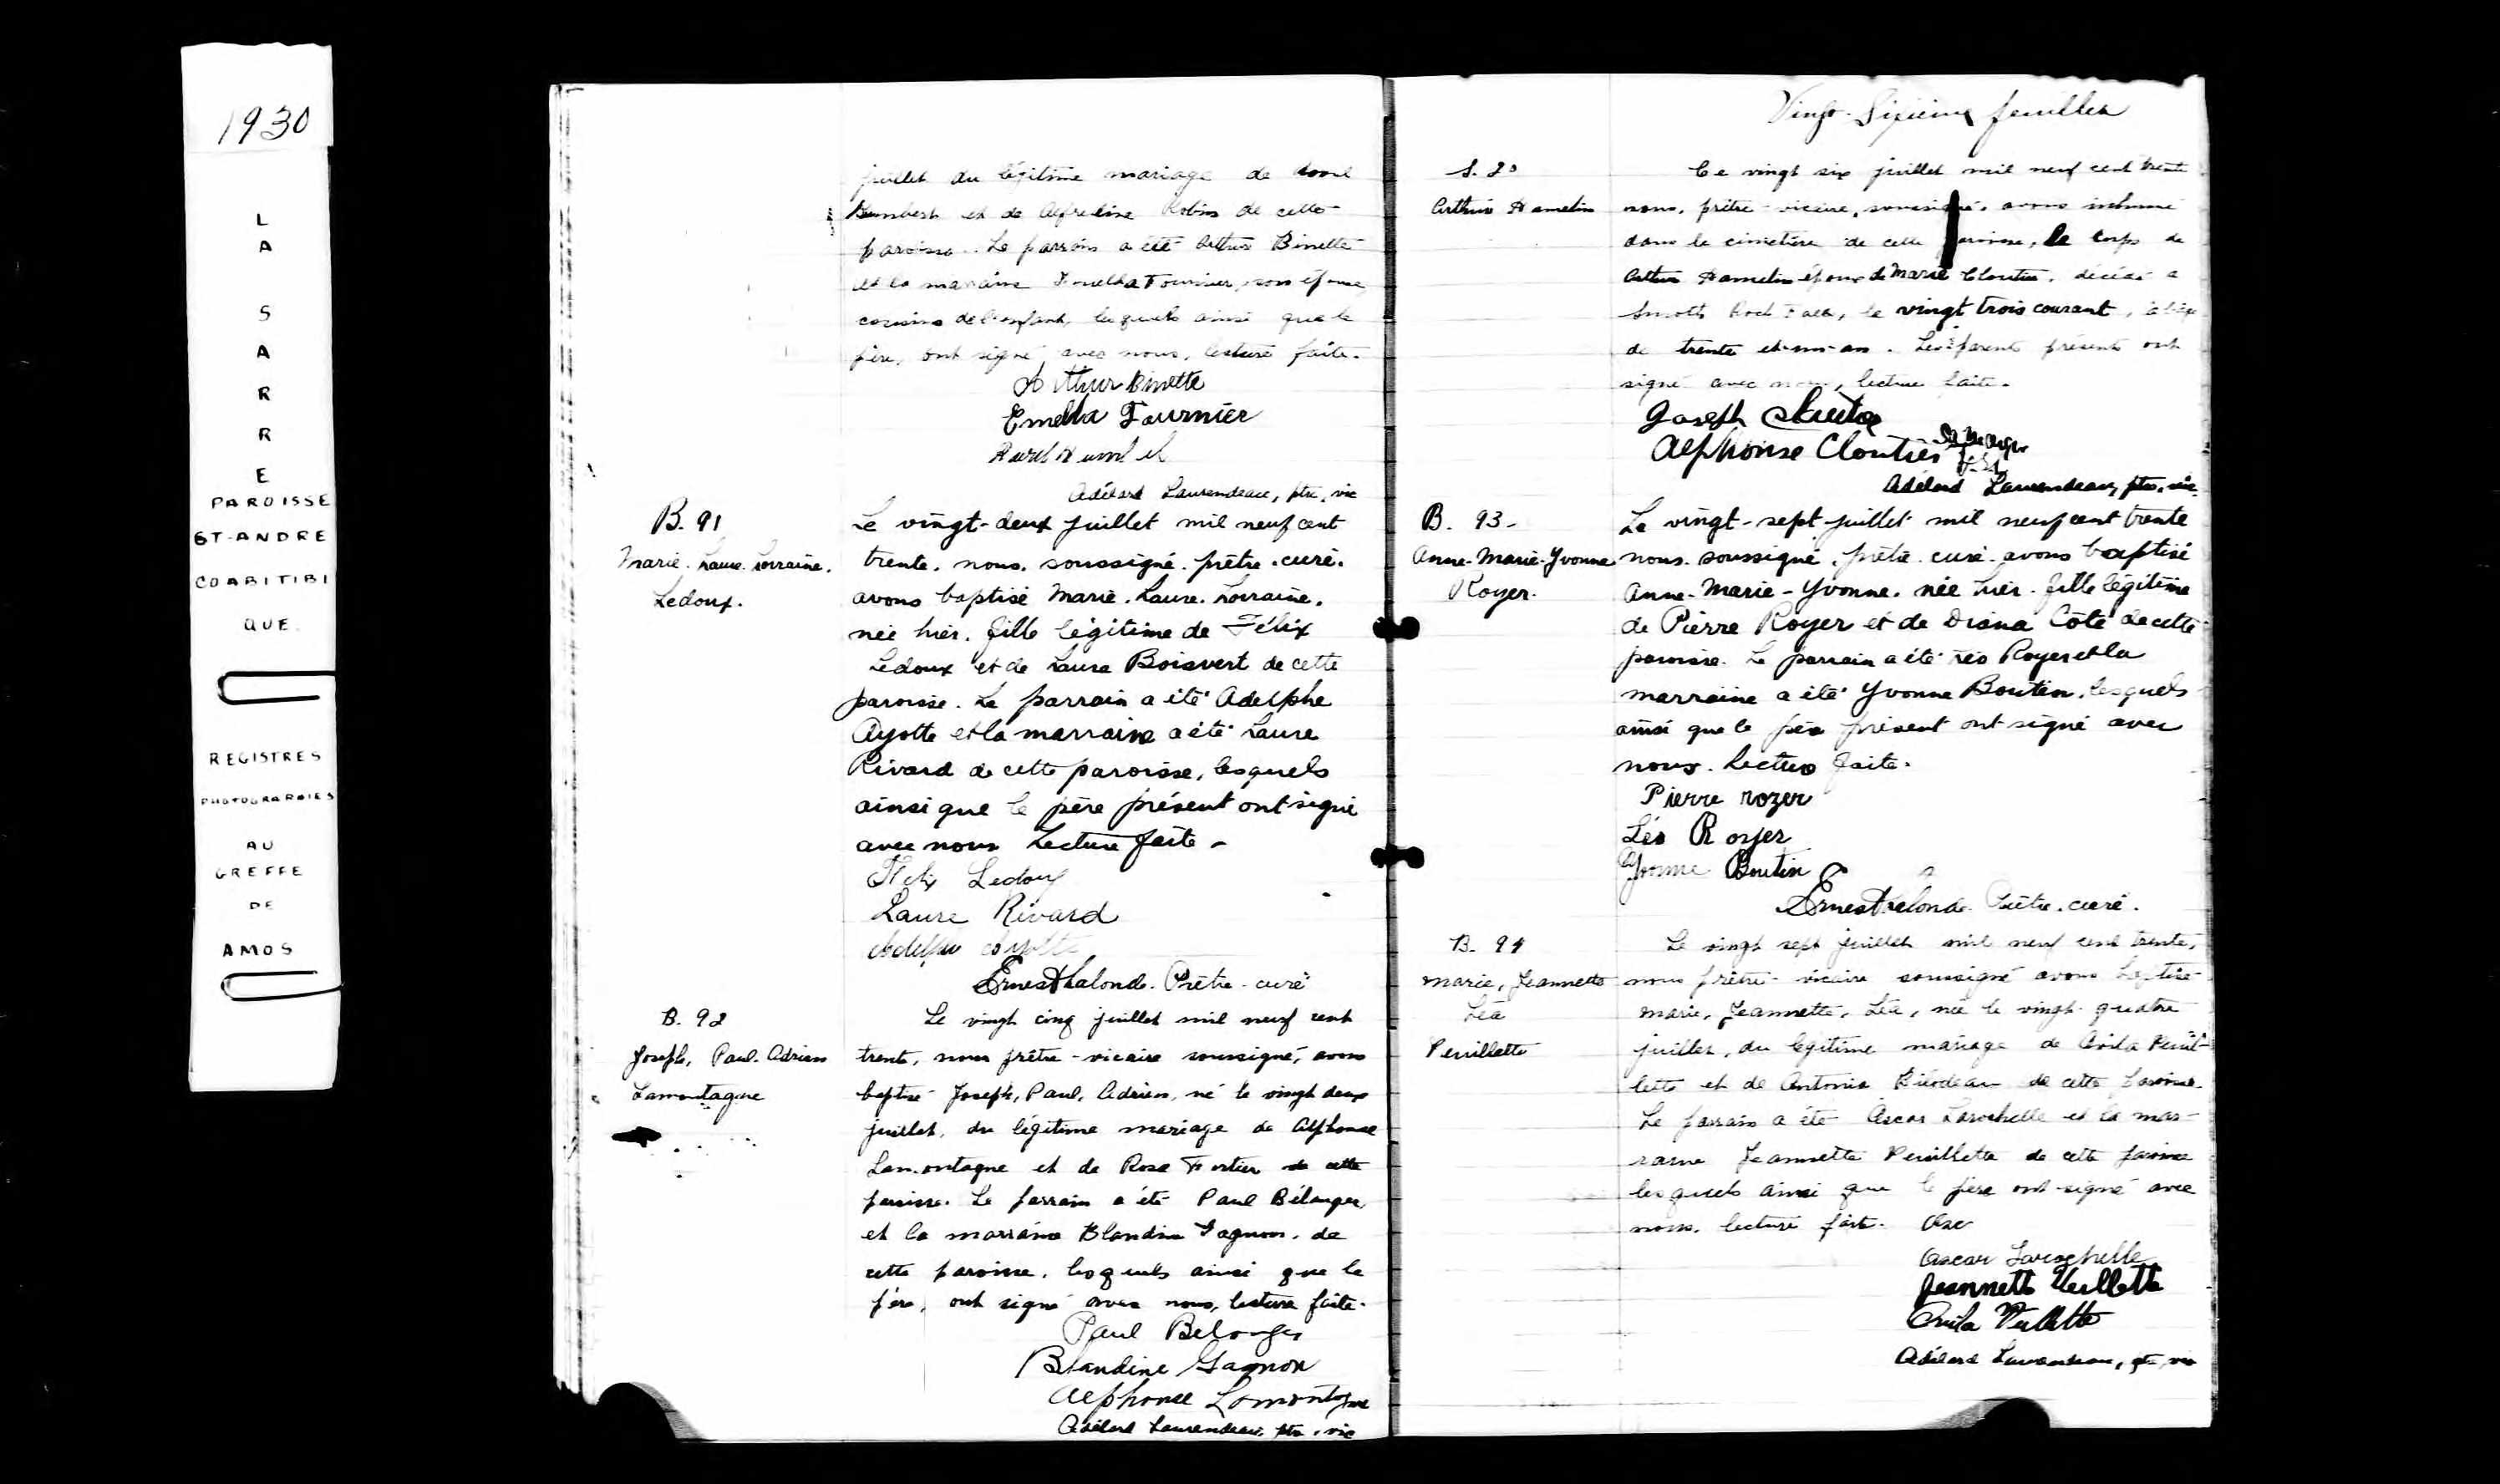 1930
L
A
S
A
R
R
E
PAROISSE
ST-ANDRE
CO ABITIBI
QUE.
REGISTRES
PHOTOGRAPHIES
AU
GREFFE
DE
AMOS
juillet du légitime mariage de
Humbert et de Alfredine Robin de cette
paroisse. Le parrain a été Arthur Binette
et la marraine Fournier, son épouse,
cousins de l'enfant, lesquels ainsi que le
père, ont signé avec nous, lecture faite.
Arthur Binette
Emelda Fournier
Adélard Laurendeau, ptre, vic
B. 91
Marie. Laure. Lorraine.
Ledoux.
Le vingt-deux juillet mil neuf cent
trente. nous. soussigné. prêtre. curé.
avons baptisé Marie. Laure. Lorraine.
née hier. fille légitime de Félix
Ledoux et de Laura Boisvert de cette
paroisse. Le parrain a été Adelphe
Ayotte et la marraine a été Laure
Rivard de cette paroisse, lesquels
ainsi que le père présent ont signé
avec nous Lecture faite -
Félix Ledoux
Laure Rivard
Adelphe Ayotte
Ernest Lalonde. Prêtre - curé
B. 92
Joseph, Paul. Adrien
Lamontagne
Le vingt cinq juillet mil neuf cent
trente, nous prêtre - vicaire soussigné, avons
baptisé Joseph, Paul, Adrien, né le vingt deux
juillet, du légitime mariage de Alphonse
Lamontagne et de Rose Fortier de cette
paroisse. Le parrain a été Paul Bélanger,
et la marraine Blandine Gagnon. de
cette paroisse, lesquels ainsi que le
père, ont signé avec nous, lecture faite.
Paul Belanger
Blandine Gagnon
Alphonse Lamontagne
Adélard Laurendeau, ptre, vic
Vingt-Sixième feuillet
S. 20
Arthur Hamelin
Ce vingt six juillet mil neuf cent trente
nous, prêtre-vicaire, soussigné, avons inhumé
dans le cimetière de cette paroisse, le corps de
Arthur Hamelin époux de Marie Cloutier, décédé a
Smooth Rock Falls, le vingt trois courant, à l'âge
de trente et-un-an. Les parents présents ont
signé avec nous, lecture faite.
Joseph
Alphonse Cloutier
Adélard Laurendeau, ptre, vic.
B. 93-
Anne-Marie-Yvonne
Royer.
Le vingt-sept juillet mil neuf cent trente
nous. soussigné. prêtre. curé. avons baptisé
Anne-Marie-Yvonne. née hier. fille légitime
de Pierre Royer et de Diana Côté de cette
paroisse. Le parrain a été Léo Royer et la
marraine a été Yvonne Boutin, lesquels
ainsi que le père présent ont signé avec
nous. Lecture faite.
Pierre royer
Léo Royer
Yvonne Boutin
Ernest Lalonde. Prêtre. curé.
B. 94
Marie, Jeannette
Léa
Veuillette
Le vingt sept juillet mil neuf cent trente,
nous prêtre - vicaire soussigné avons baptisé
Marie, Jeannette, Léa, née le vingt quatre
juillet, du légitime mariage de Avila Veuil-
lette et de Antonia Bilodeau de cette paroisse.
Le parrain a été Oscar Larochelle et la mar-
raine Jeannette Veuillette de cette paroisse
lesquels ainsi que le père ont signé avec
nous, lecture faite. Osc
Oscar Larochelle
Jeannette Veillette
Avila Veillette
Adélard Laurendeau, ptre, vic